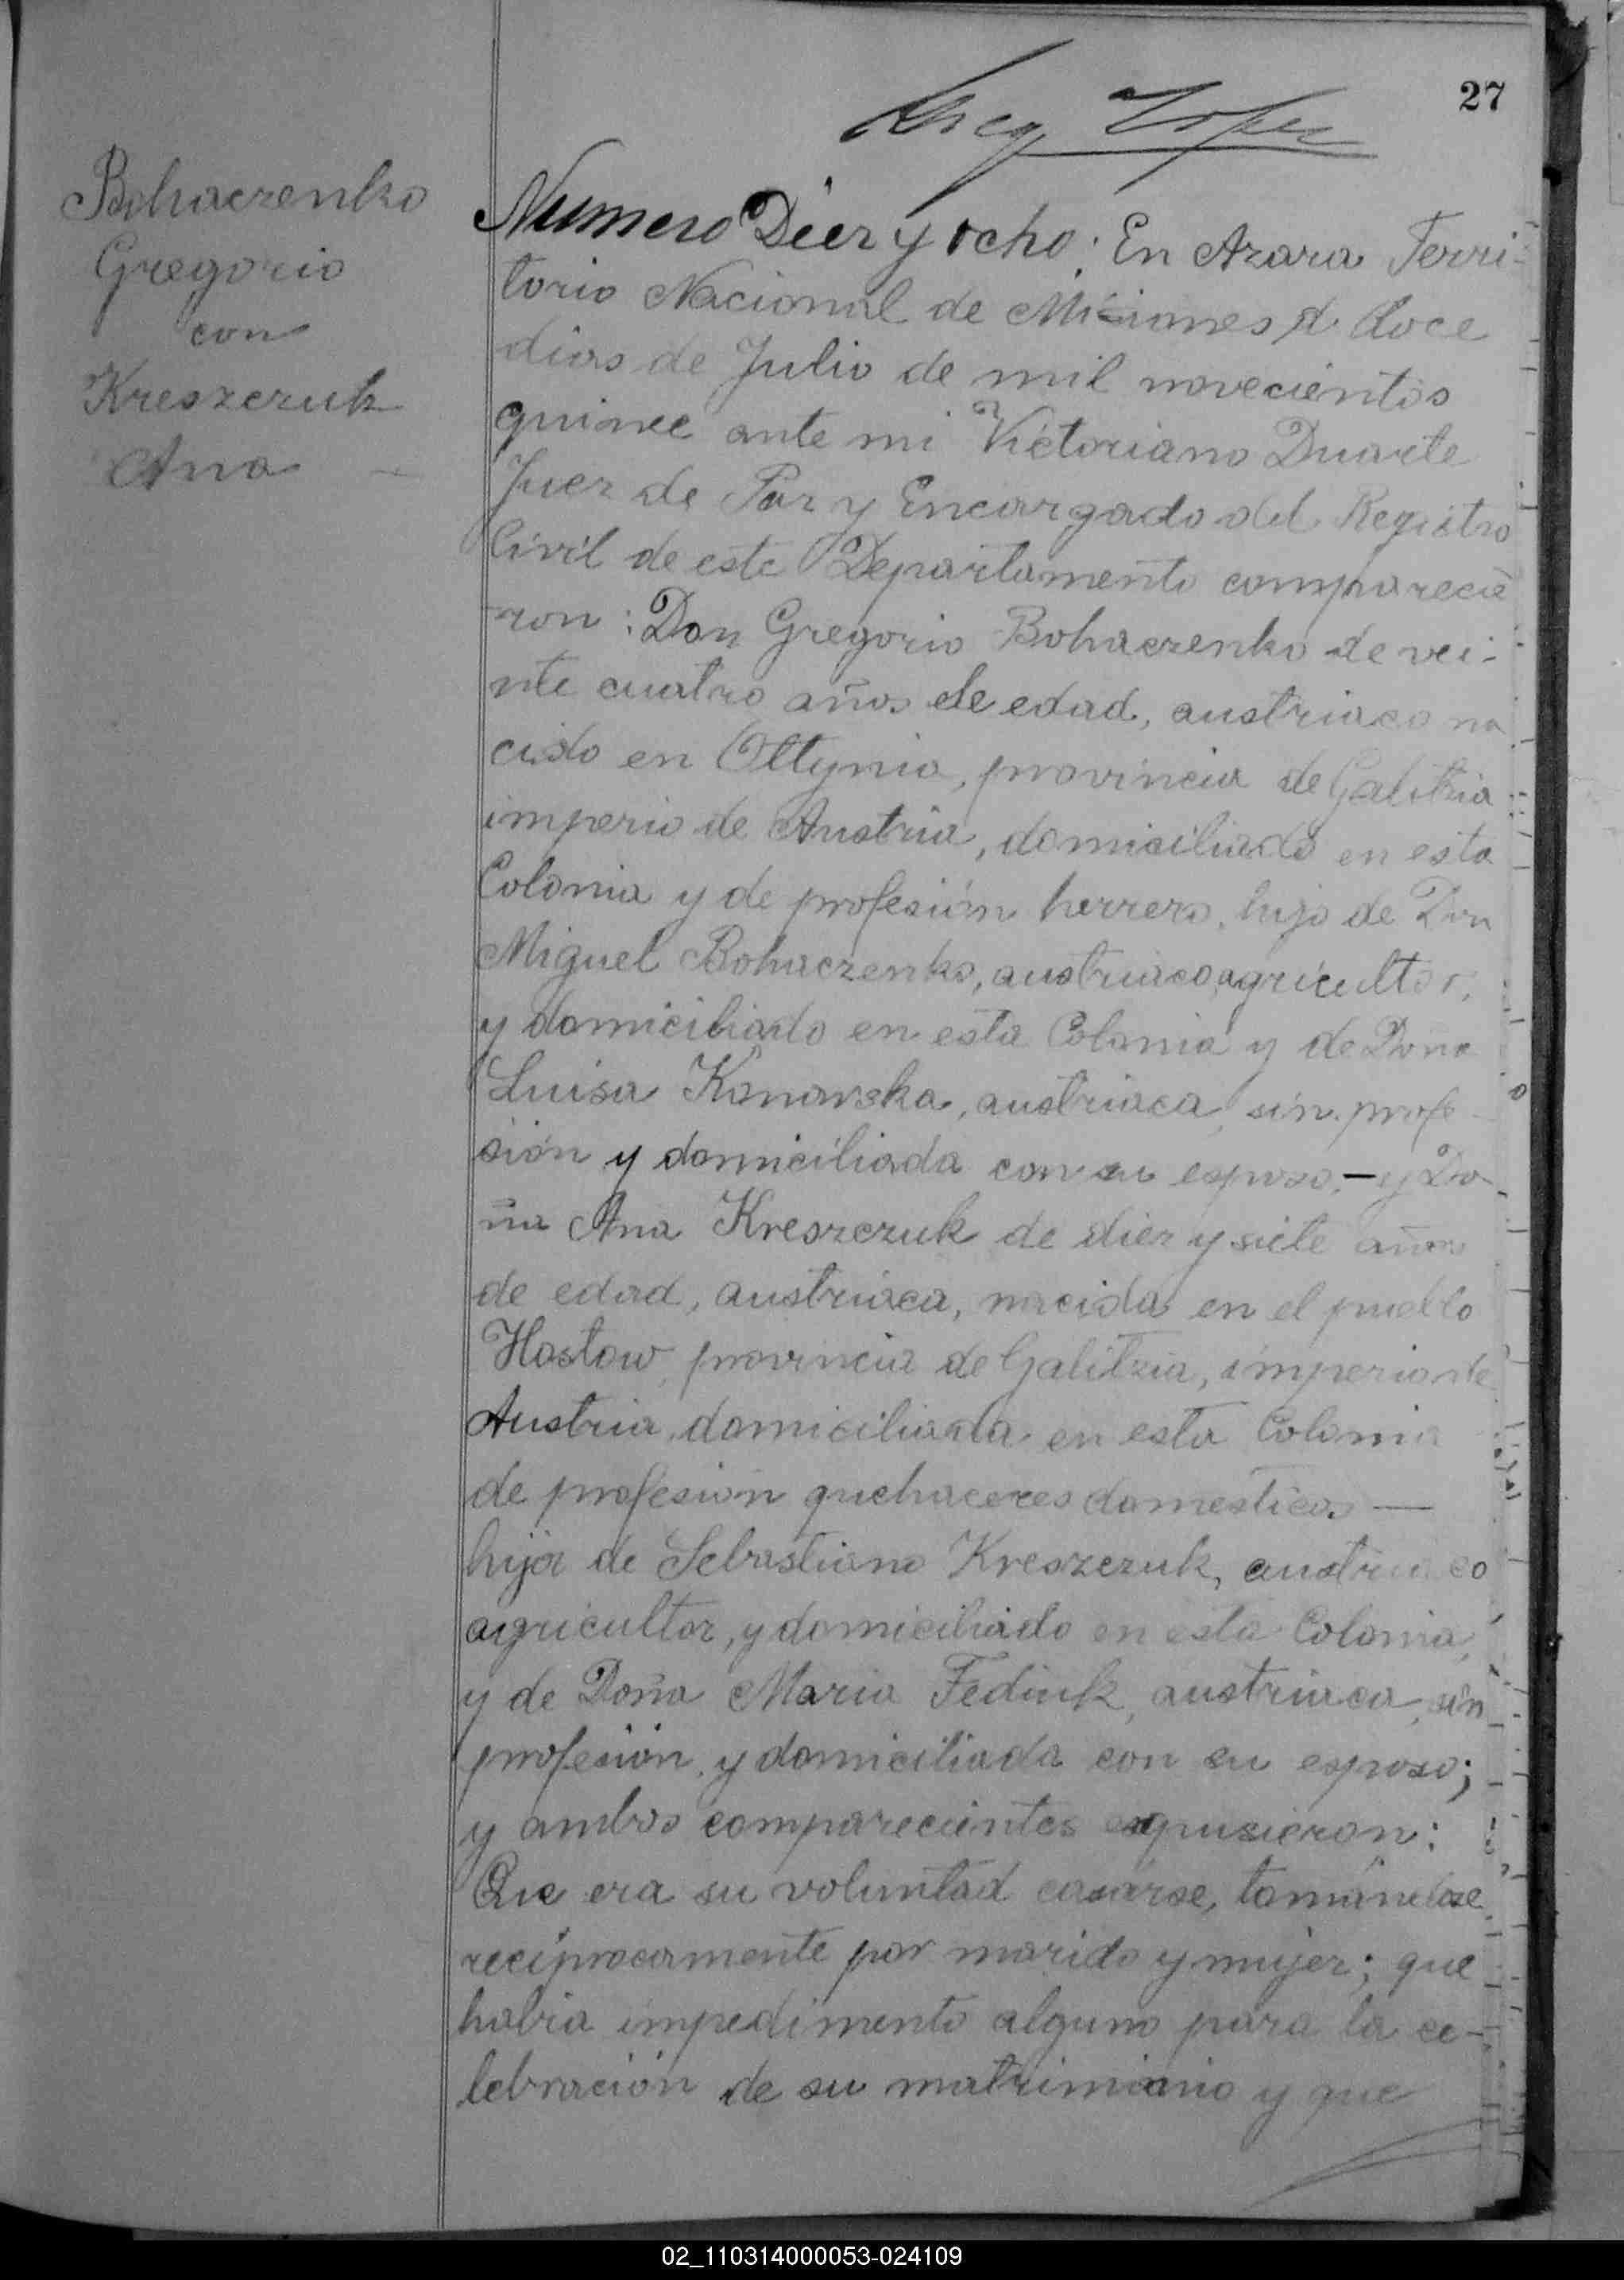 27
Bohaczenko
Gregorio
con
Kreszczuk
Ana
Numero Diez y ocho. En Azara Terri-
torio Nacional de Misiones á doce
dias de Julio de mil novecientos
quince ante mi Victoriano Duarte
Juez de Paz y Encargado del Registro
Civil de este Departamento comparecie
ron: Don Gregorio Bohaczenko de vei-
nte cuatro años de edad, austriaco na
cido en Ottynia, provincia de Galitzia
imperio de Austria, domiciliado en esta
Colonia y de profesión herrero, hijo de Don
Miguel Bohaczenko, austriaco, agricultor,
y domiciliado en esta Colonia y de Doña
Luisa Konarska, austriaca, sin profe-
sión y domiciliada con su esposo,— y Do-
ña Ana Kreszczuk de diez y siete años
de edad, austriaca, nacida en el pueblo
Hostow, provincia de Galitzia, imperio de
Austria, domiciliada en esta Colonia
de profesión quehaceres domesticos —
hija de Sebastiano Kreszczuk, austriaco
agricultor, y domiciliado en esta Colonia,
y de Doña Maria Fediuk, austriaca, sin
profesión, y domiciliada con su esposo;
y ambos comparecientes expusieron:
Que era su voluntad casarse, tomándose
reciprocamente por marido y mujer; que
habia impedimento alguno para la ce-
lebración de su matrimonio y que
02_110314000053-024109